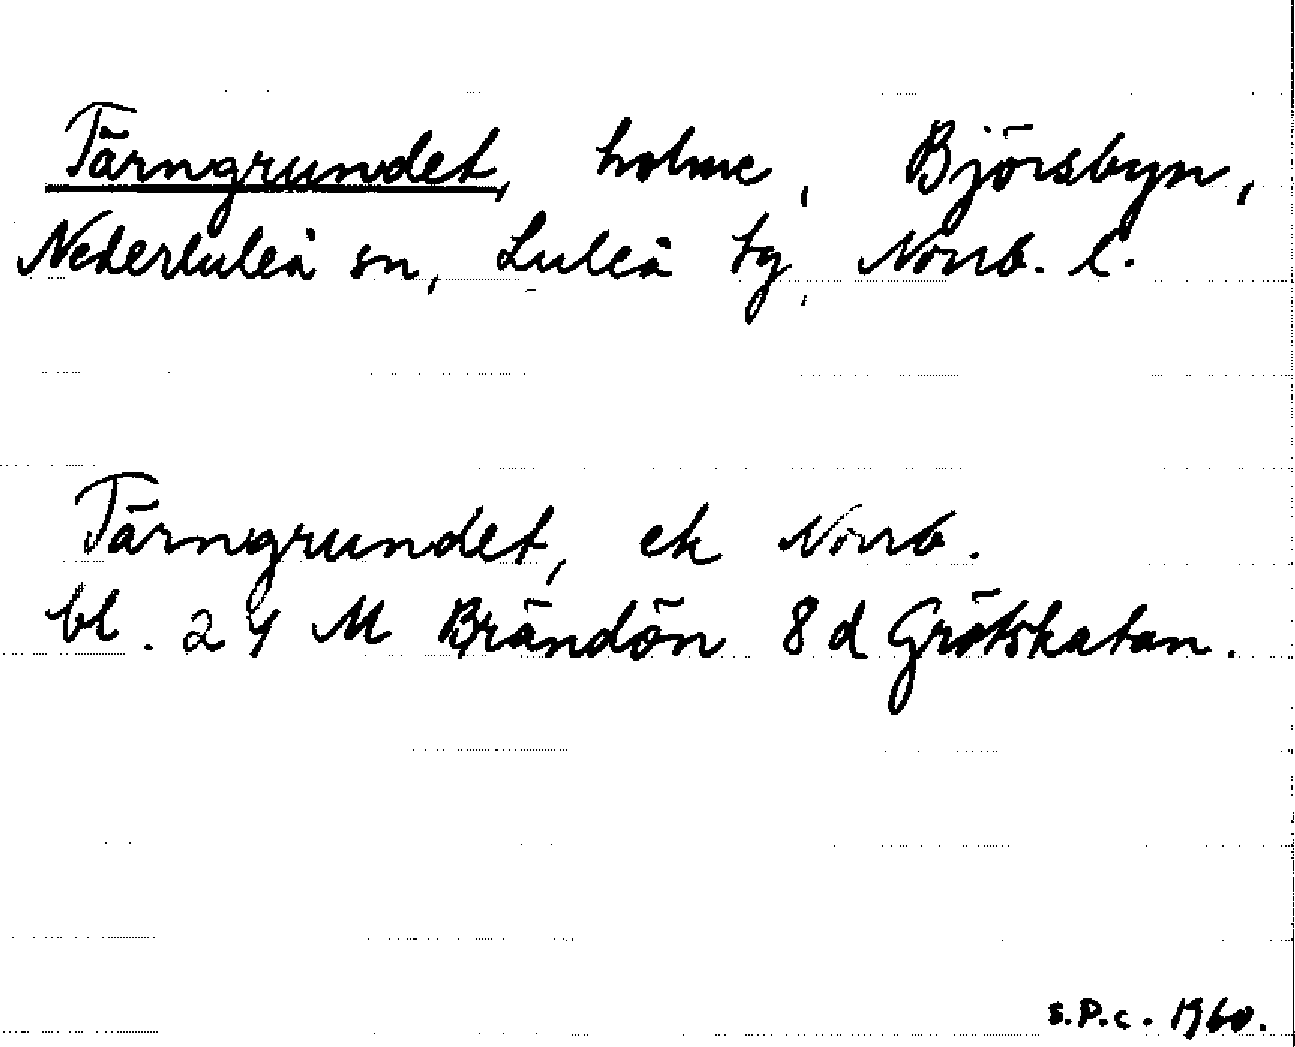 Tärngrundet, holme, Björsbyn,
Nederluleå sn, Luleå tg, Norrb. l.
Tärngrundet, ek Norrb.
bl. 24 M Brändön 8 d Grötskatan.
S.P.C. 1960.